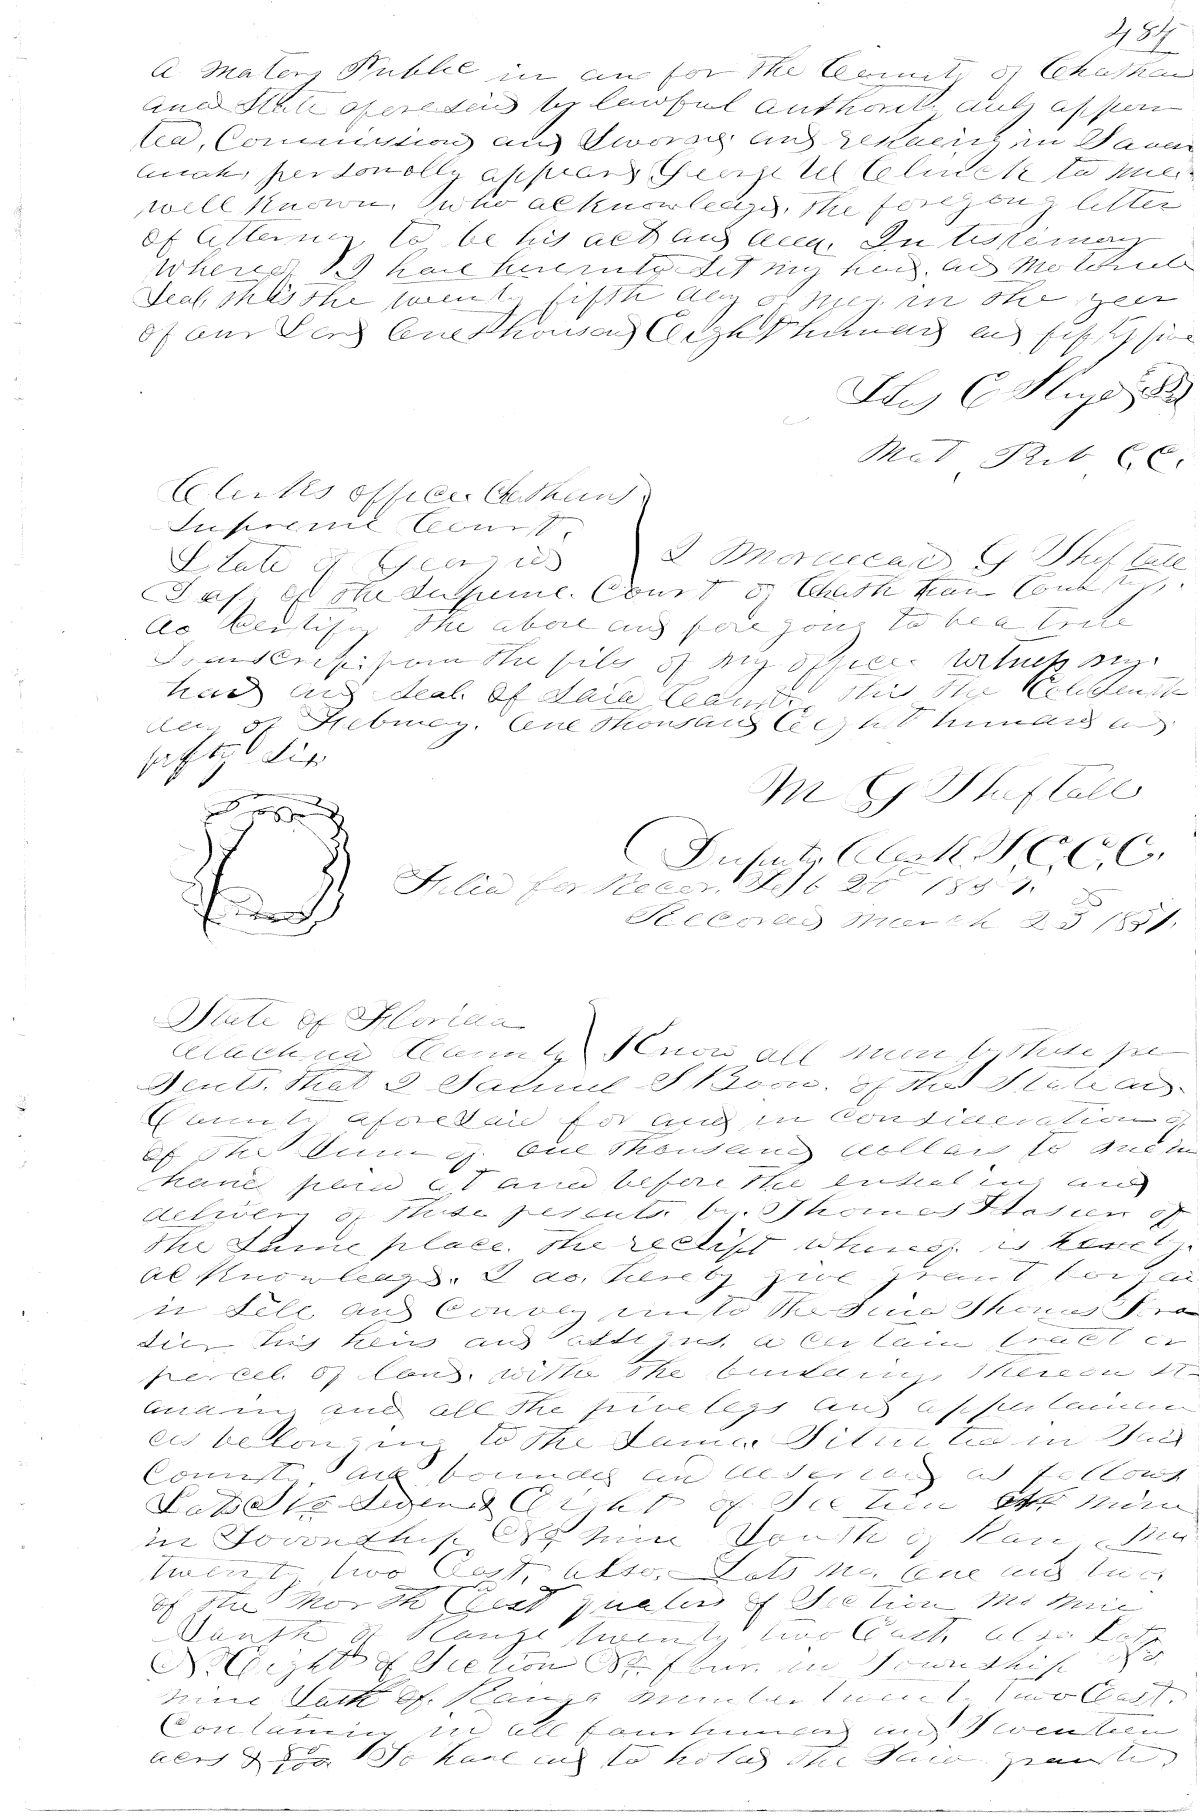 484
a Notary Public in and for the County of Chatham
and State aforesaid by lawful authority duly appoin
ted, Commissiond and Sworne and residing in Savan
anah, personally appeard George W Clinck to me
well known. who acknowledgd. the foregong letter
of Attorney to be his act and deed. In testimony
Whereof I have hereunto Set my hand. and Notorial
Seal this the twenty fifth day of May in the year
of our Lord One Thousand Eight hundred and fifty five
Thos C
Not Pub C.C.
Clerks office Chatham
Supreme Court.
State of Georgia I Mordecai G Sheftall
of the Supreme Court of Chatham County.
do Certify the above and foregoing to be a true
Transcript from the files of my office Witness my
hand and Seal of Said Court. this the
day of Februay. One thousand Eight hundred and
fifty Six
M G Sheftall
Deputy Clerk S.C.C.C.
Filed for Recor. Feb 25
Recorded March 25
State of Florida
Alachua County Know all men by these pe
sents. that I Samuel S Boon. of the State and
County aforesaid for and in consideration of
of the Sum of One thousand dollars to me in
hand paid at and before the ensealing and
delivery of these presents by. Thomas Frasier of
the Same place. the reciept whereof is hereby.
acknowledgd. I do. hereby give grant bargai
n Sell and Convey unto the Said Thomas Fra
sier his heirs and assigns. a certain tract or
parcel. of land. withe the buildings thereon st
anding and all the privelegs and appertainen
ces belonging to the Same. Situated in Said
County, and bounded and described as follows
Lots Six Seven & Eight of Section Nine
in Township No nine South of Range
twenty two East, also. Lots No. One and two.
of the North East quaters of Section No Nine
South of Range twenty two East, also Lots
No. Eight of Section No. four. in Township No.
nine South of. Range number twenty two East.
Containing in all four hundred and Seventeen
acrs & 80/100. To have and to hold the Said granted